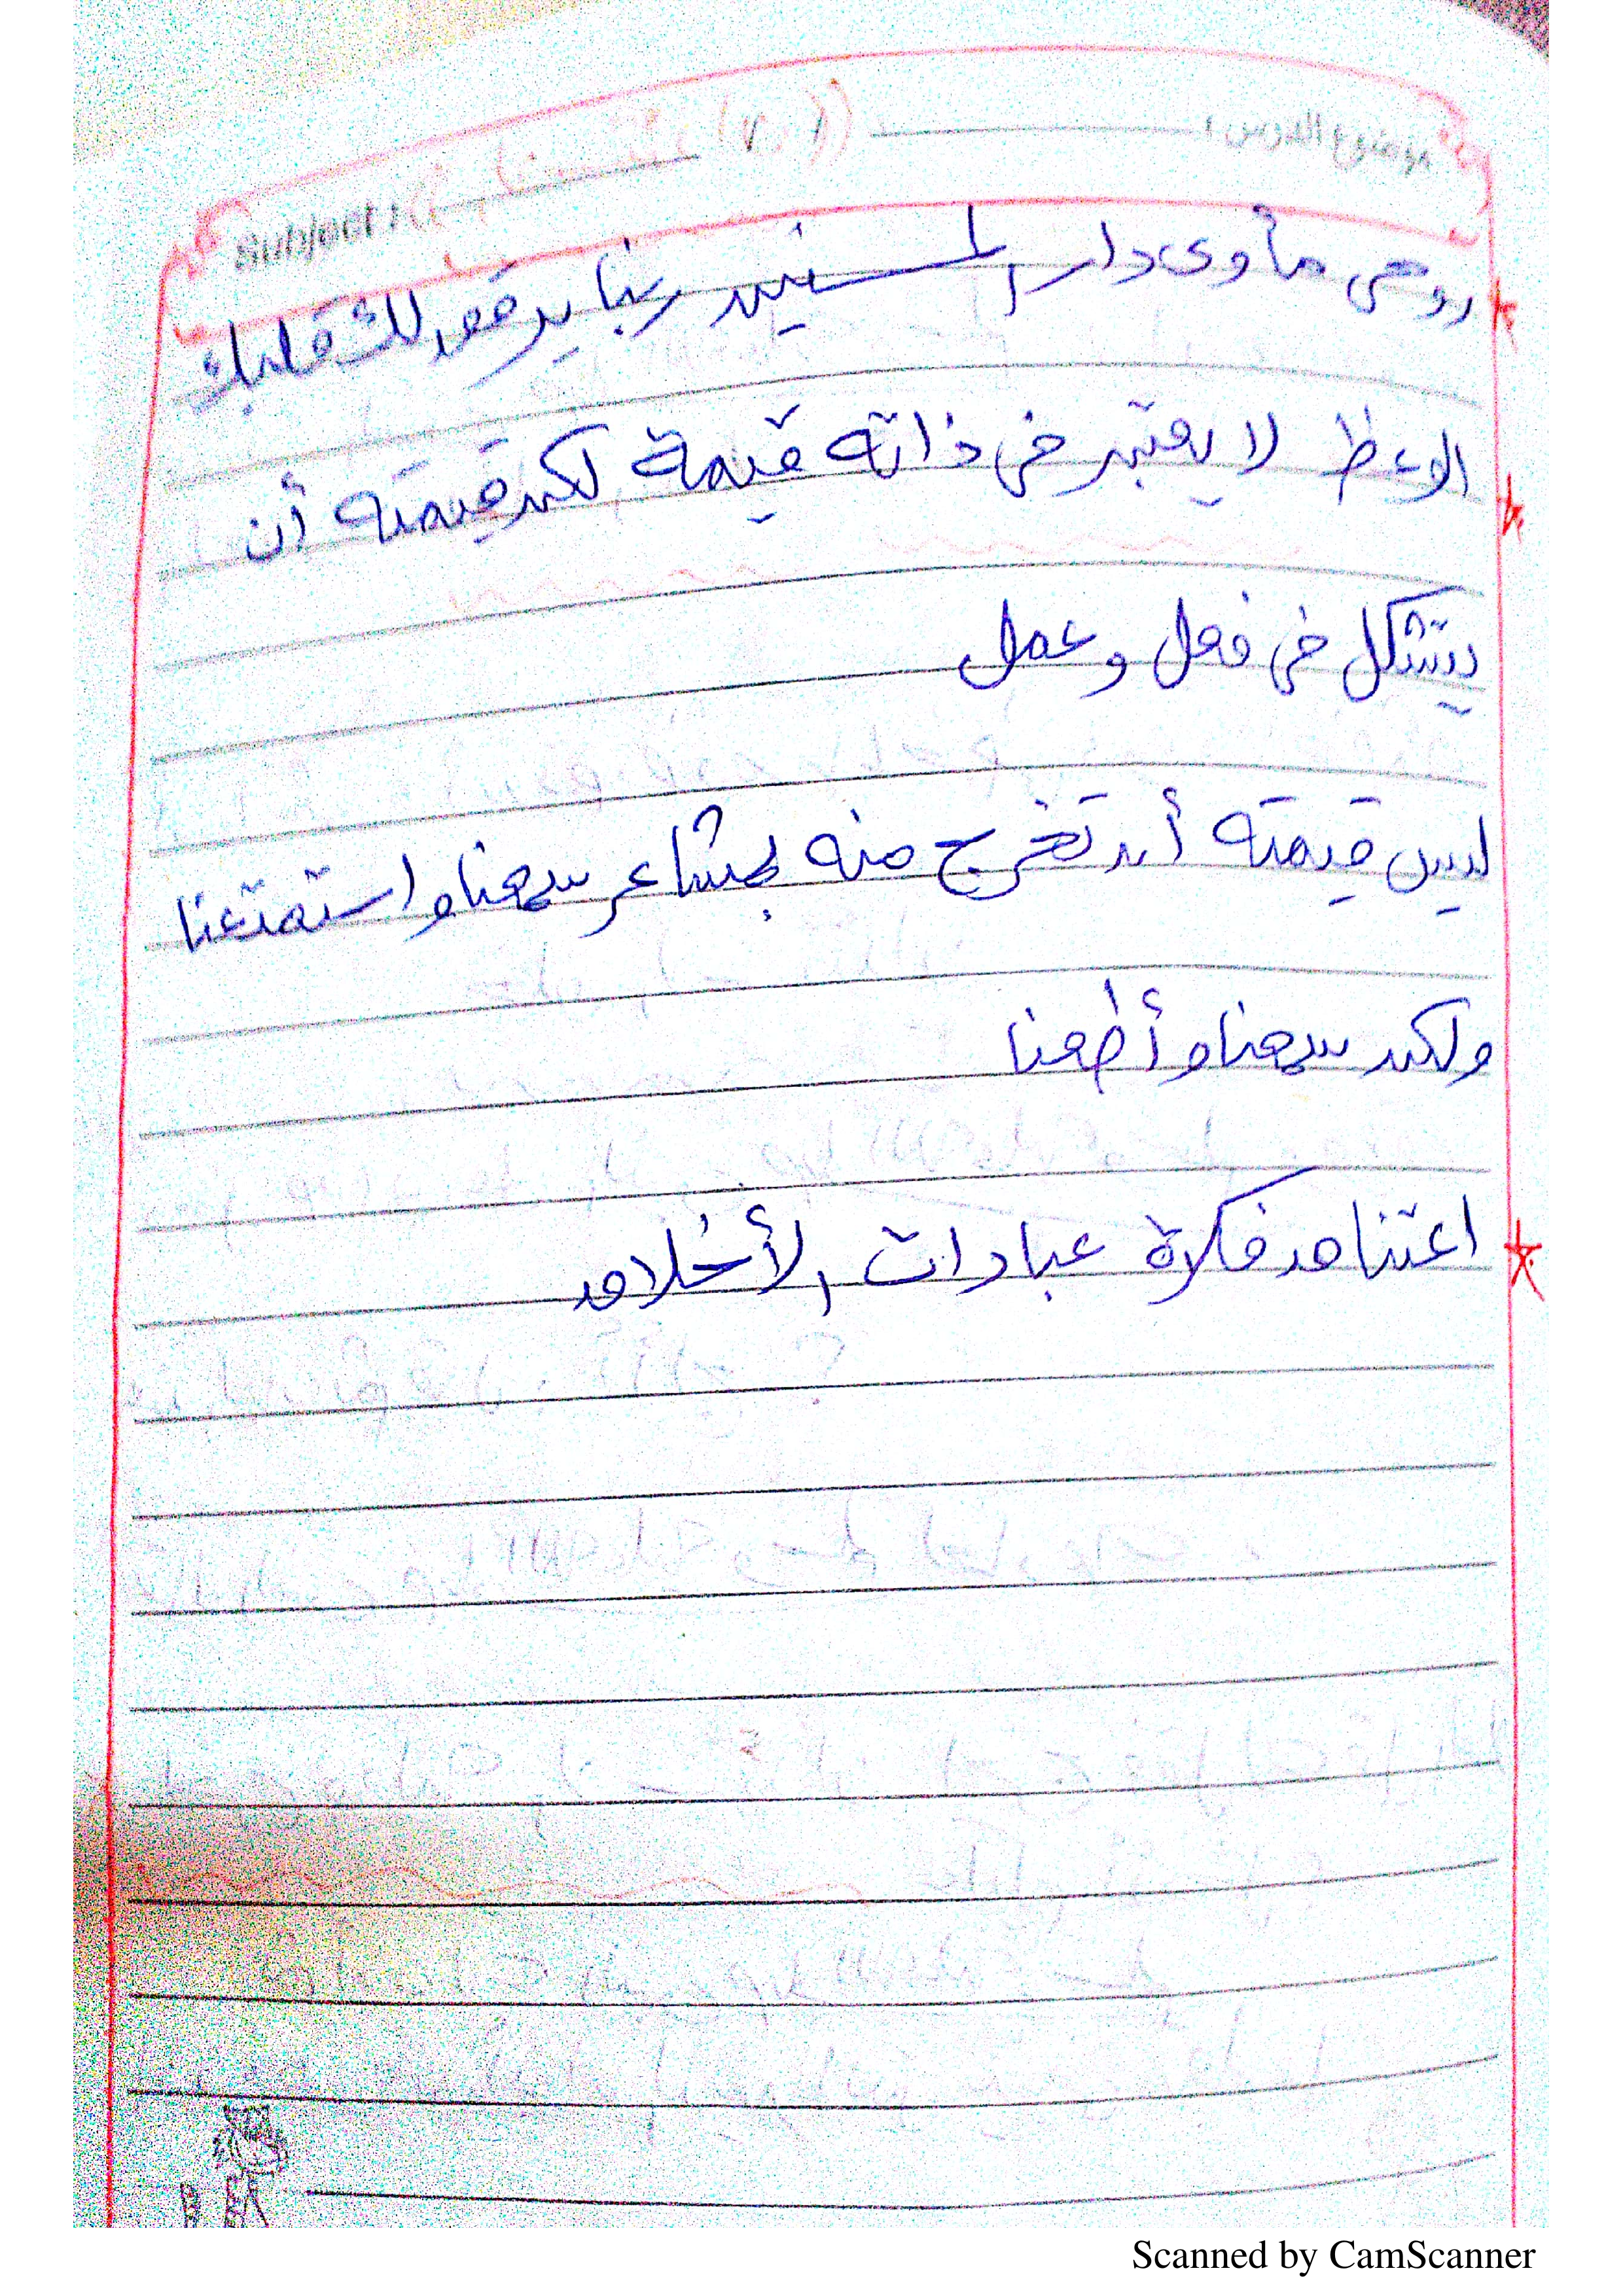 موضوع الدرس :
Subject :
روحى مأوى دار المسنين ربنا يرقق لك قلبك
الوعظ لا يعتبر فى ذاته قيمة لكن قيمته أن
يتشكل فى فعل وعمل
ليس قيمته أن تخرج منه بمشاعر سمعنا واستمتعنا
ولكن سمعنا وأطعنا
اعتناق فكرة عبادات الأخلاق
Scanned by CamScanner